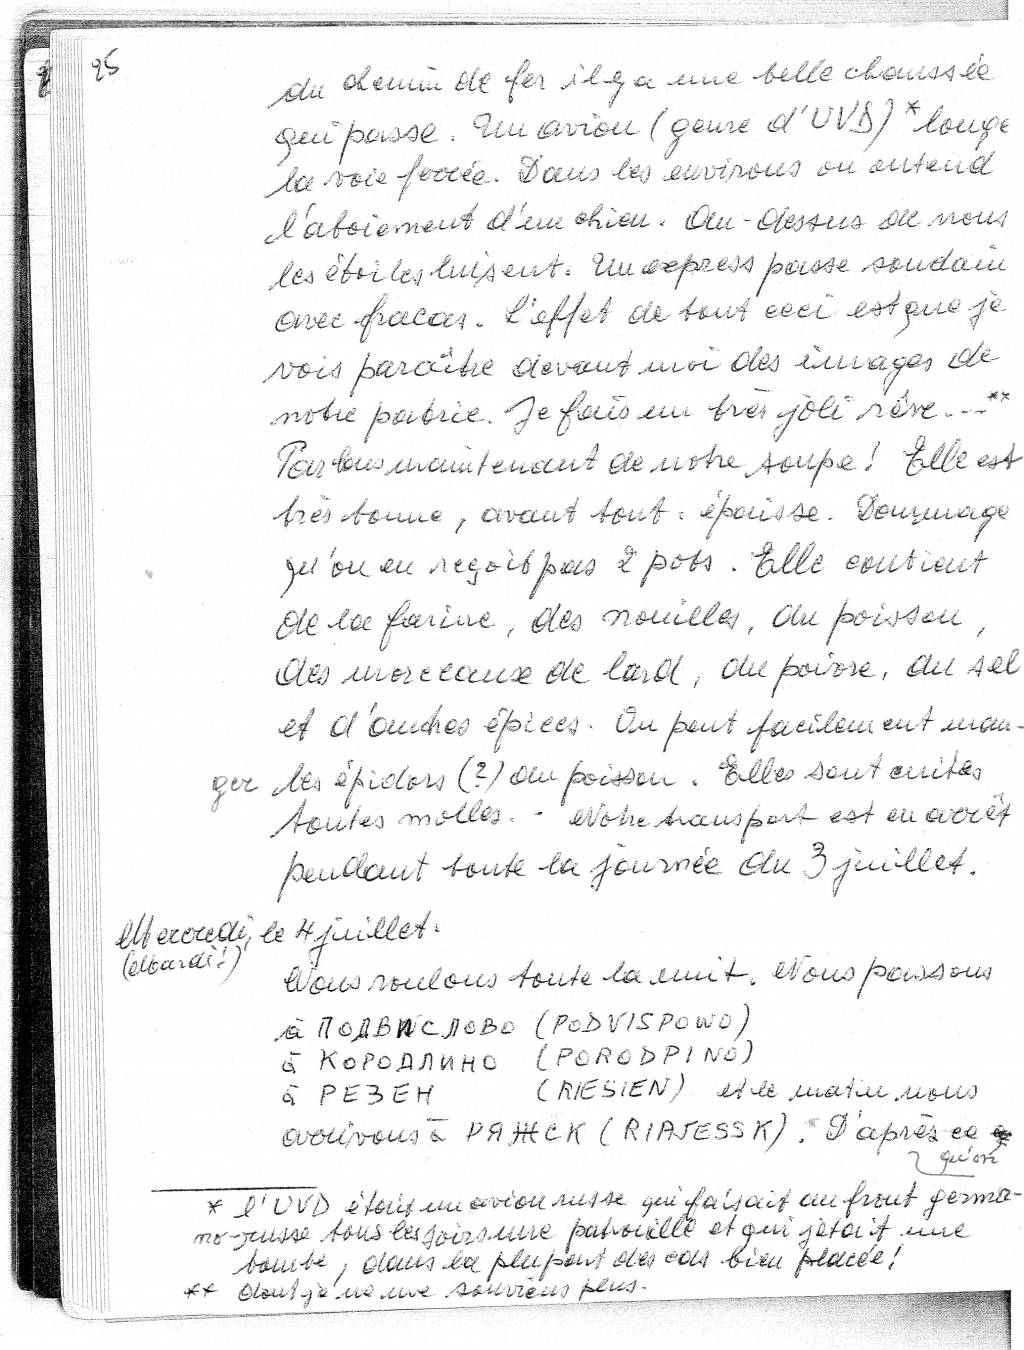 25
du chemin de fer il y a une belle chaussée
qui passe. Un avion (genre d'UVD)* longe
la voie ferrée. Dans les environs on entend
l'aboiement d'un chien. Au-dessus de nous
les étoiles luisent. Un express passe soudain
avec fracas. L'effet de tout ceci est que je
vois paraître devant moi des images de
notre patrie. Je fais un très joli rêve...**
Parlons maintenant de notre soupe! Elle est
très bonne, avant tout: épaisse. Dommage
qu'on en reçoit pas 2 pots. Elle contient
de la farine, des nouilles, du poisson,
des morceaux de lard, du poivre, du sel
et d'autres épices. On peut facilement man-
ger les épidors (?) du poisson. Elles sont cuites
toutes molles. - Notre transport est en arrêt
pendant toute la journée du 3 juillet.
Mercredi, le 4 juillet.
(Mardi!)
Nous roulons toute la nuit. Nous passons
à ПОДВИСЛОВО (PODVISPOWO)
à КОРОДЛИНО (PORODPINO)
à РЕЗЕН (RIESIEN) et le matin nous
arrivons à РЯЖСК (RIAJESSK). D'après ce
qu'on
* l'UVD était un avion russe qui faisait au front germa-
no-russe tous les soirs une patrouille et qui jetait une
bombe, dans la plupart des cas bien placée!
** dont je ne me souviens plus.